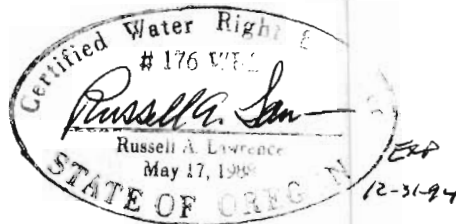 Certified Water Right E
# 176 WRE
Russell A. Law
Russell A. Lawrence
May 17, 1989
STATE OF OREGON
EXP
12-31-94